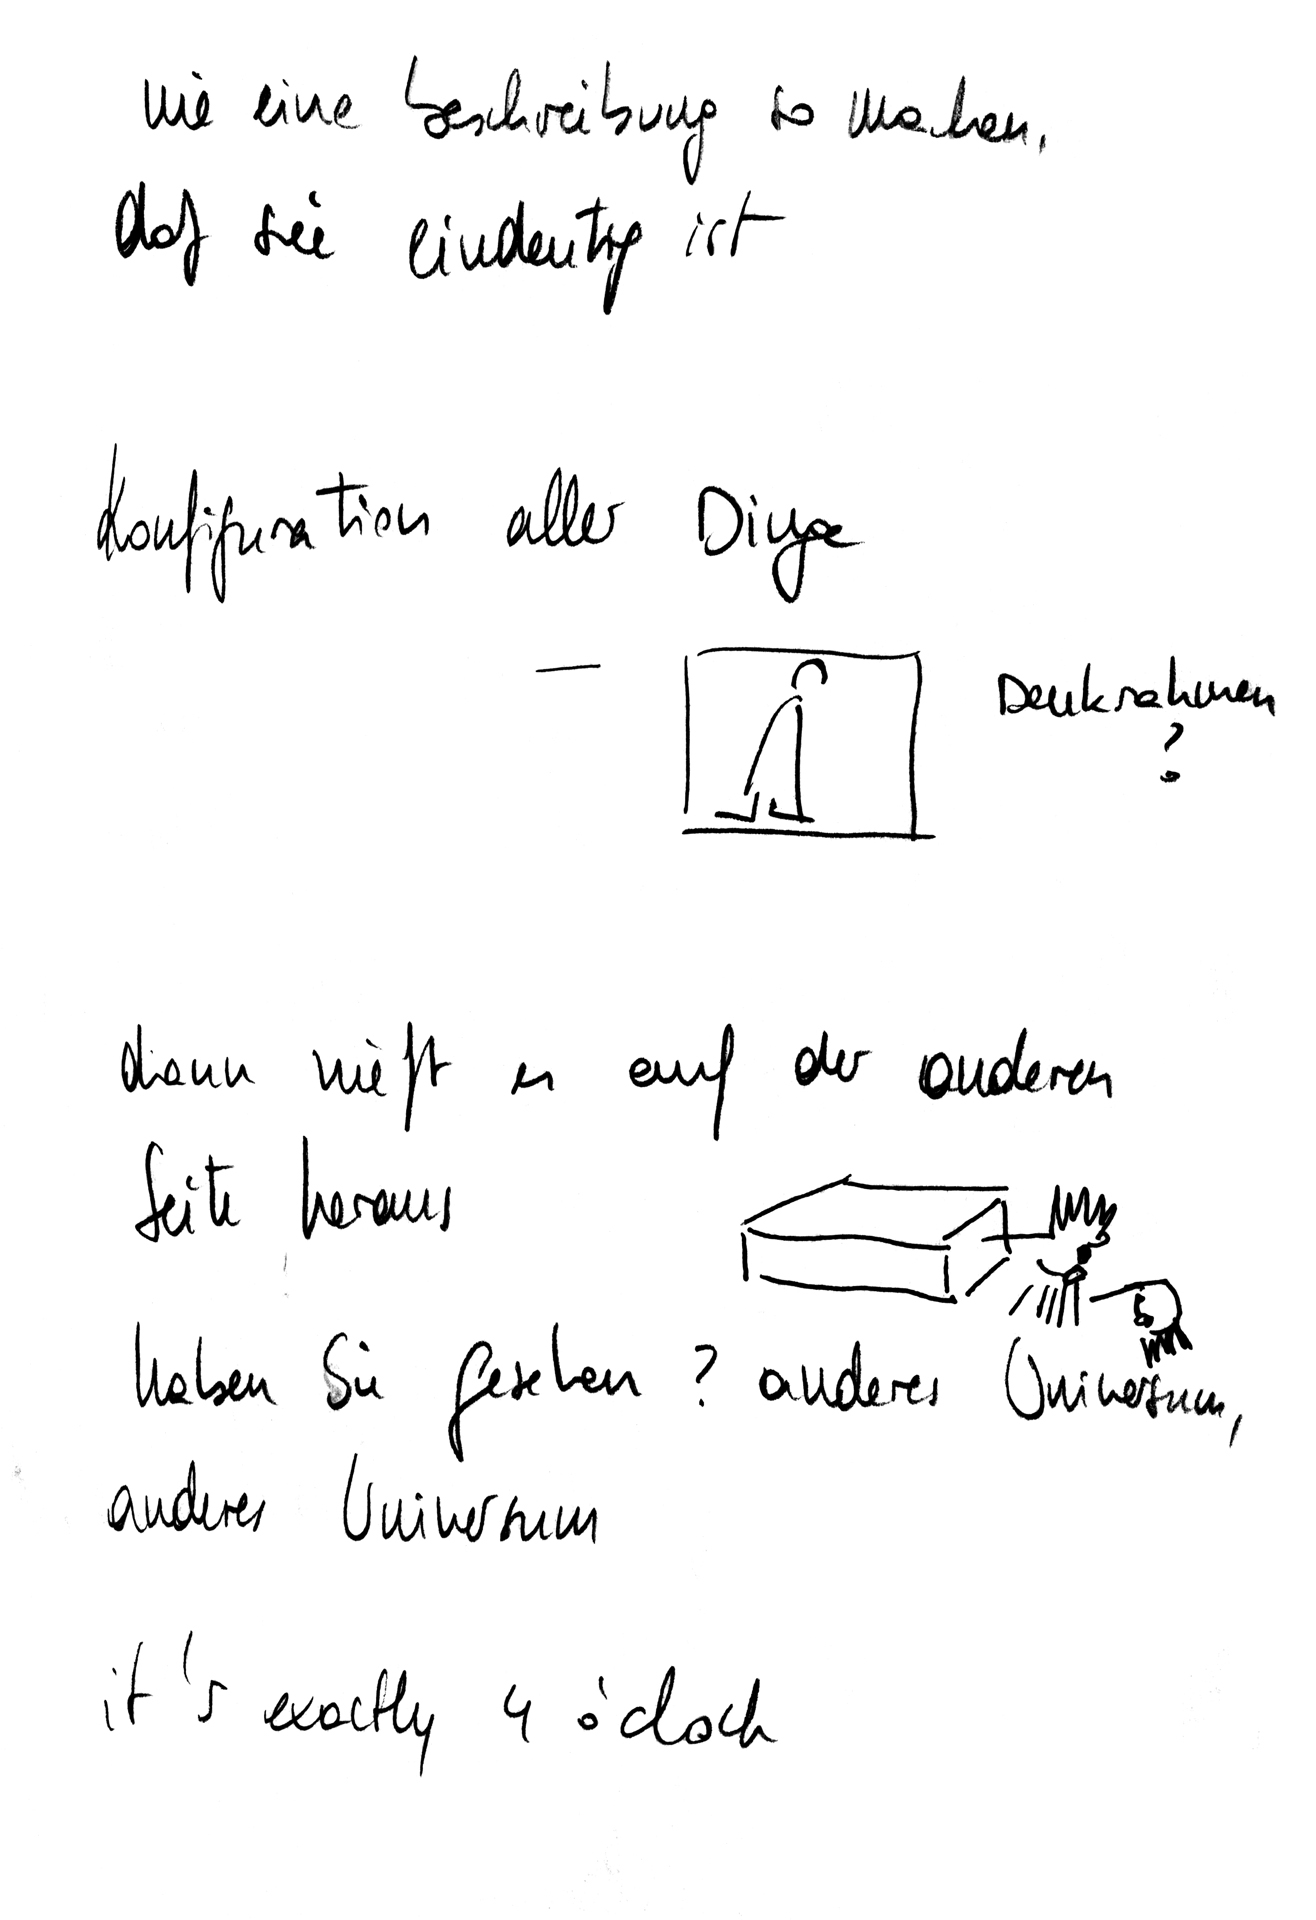 nie eine Beschreibung so machen,
daß sie eindeutig ist
Konfiguration aller Dinge
—
Denkrahmen
?
dann nießt er auf der anderen
Seite heraus
haben Sie gesehen? anderes Universum,
anderes Universum
it's exactly 4 o'clock